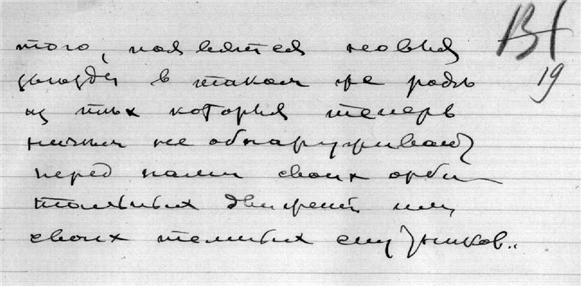 того, появятся новыя
звѣзды в таком же родѣ
из тѣх которыя теперь
ничѣм не обнаруживают
перед нами своих орби-
тальных движений или
своих темных спутников..
19